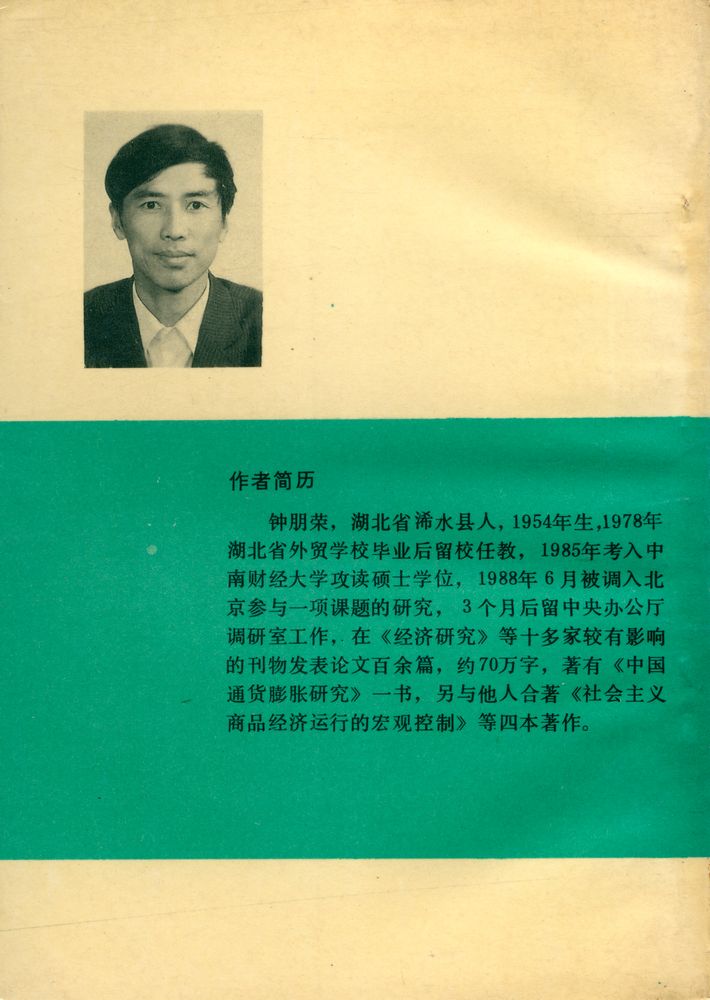 作者简历
钟朋荣，湖北省浠水县人，1954年生，1978年
湖北省外贸学校毕业后留校任教，1985年考入中
南财经大学攻读硕士学位，1988年6月被调入北
京参与一项课题的研究，3个月后留中央办公厅
调研室工作，在《经济研究》等十多家较有影响
的刊物发表论文百余篇，约70万字，著有《中国
通货膨胀研究》一书，另与他人合著《社会主义
商品经济运行的宏观控制》等四本著作。